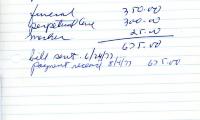 funeral 350.00
perpetual care 300.00
marker 25.00
675.00
bill sent 6/24/77
payment received 8/1/77 675.00